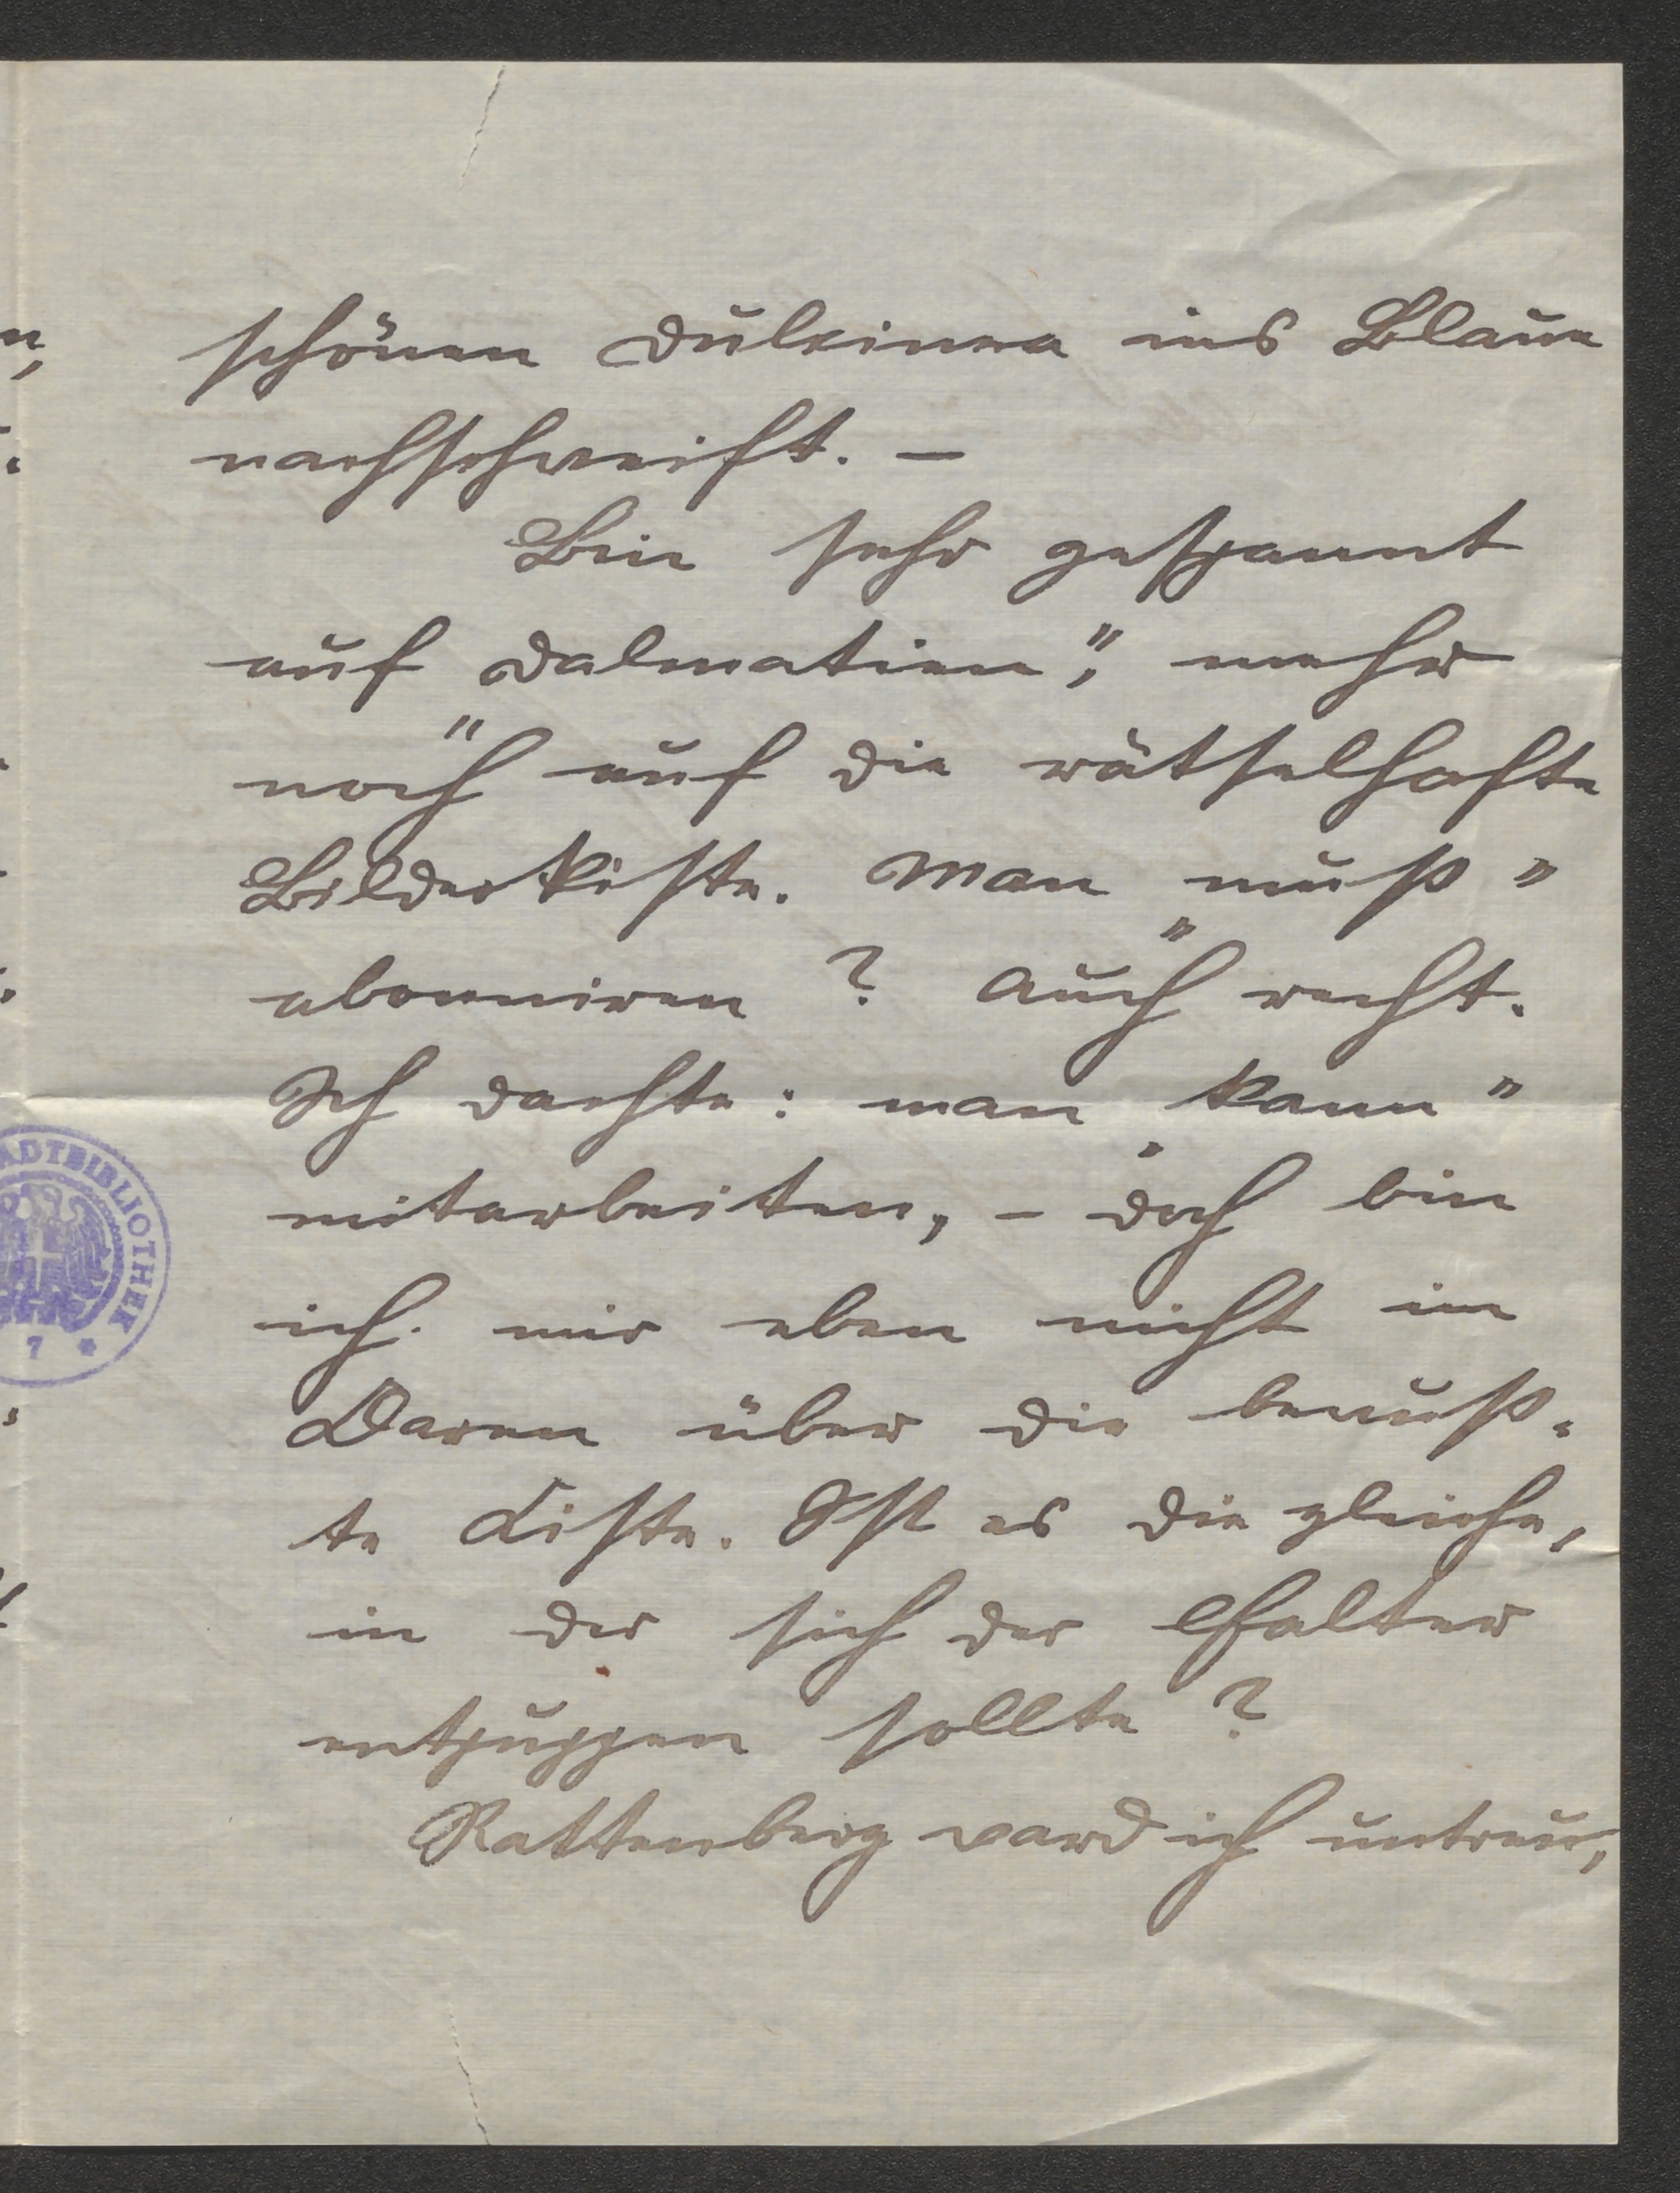 schönen Dulcinea ins Blaue
nachschweift. –
Bin sehr gespannt
auf Dalmatien", mehr
noch auf die rätselhafte
Bilderkiste. Man „muß"
abonniren? Auch recht.
Ich dachte: man „kann"
mitarbeiten, – doch bin
ich mir eben nicht im
Daren über die bewuß-
te Liste. Ist es die gleiche,
in der sich der Falter
entpuppen sollte?
Rattenberg ward ich untreu,
ADTBIBLIOTHEK
7 *